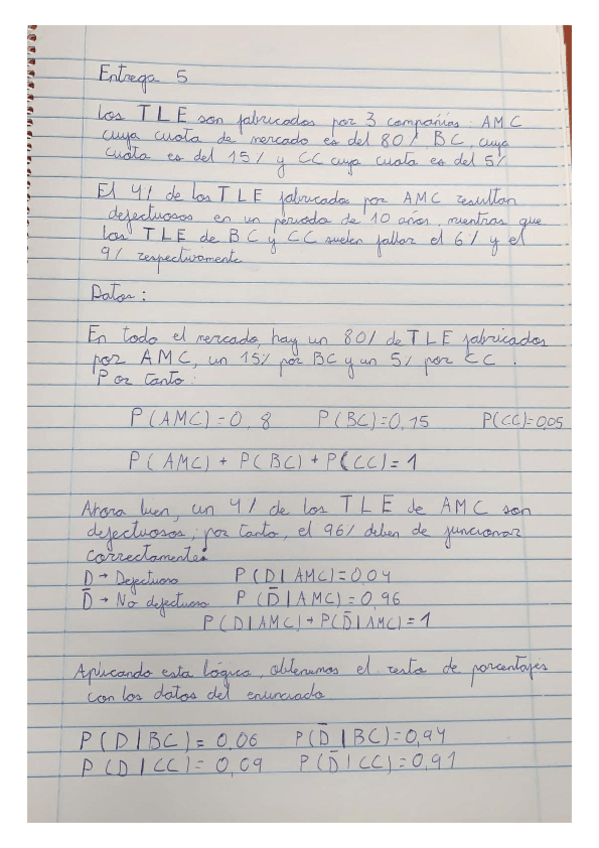 Entrega 5
Los TLE son fabricados por 3 compañías: AMC
cuya cuota de mercado es del 80%, BC, cuya
cuota es del 15% y CC cuya cuota es del 5%
El 4% de los TLE fabricados por AMC resultan
defectuosos en un periodo de 10 años, mientras que
los TLE de BC y CC suelen fallar el 6% y el
9% respectivamente
Datos:
En todo el mercado, hay un 80% de TLE fabricados
por AMC, un 15% por BC y un 5% por CC.
Por tanto:
P(AMC)=0,8 P(BC)=0,15 P(CC)=0,05
P(AMC)+P(BC)+P(CC)=1
Ahora bien, un 4% de los TLE de AMC son
defectuosos; por tanto, el 96% deben de funcionar
correctamente:
D → Defectuoso P(D|AMC)=0,04
D̄ → No defectuoso P(D̄|AMC)=0,96
P(D|AMC)+P(D̄|AMC)=1
Aplicando esta lógica, obtenemos el resto de porcentajes
con los datos del enunciado
P(D|BC)=0,06 P(D̄|BC)=0,94
P(D|CC)=0,09 P(D̄|CC)=0,91